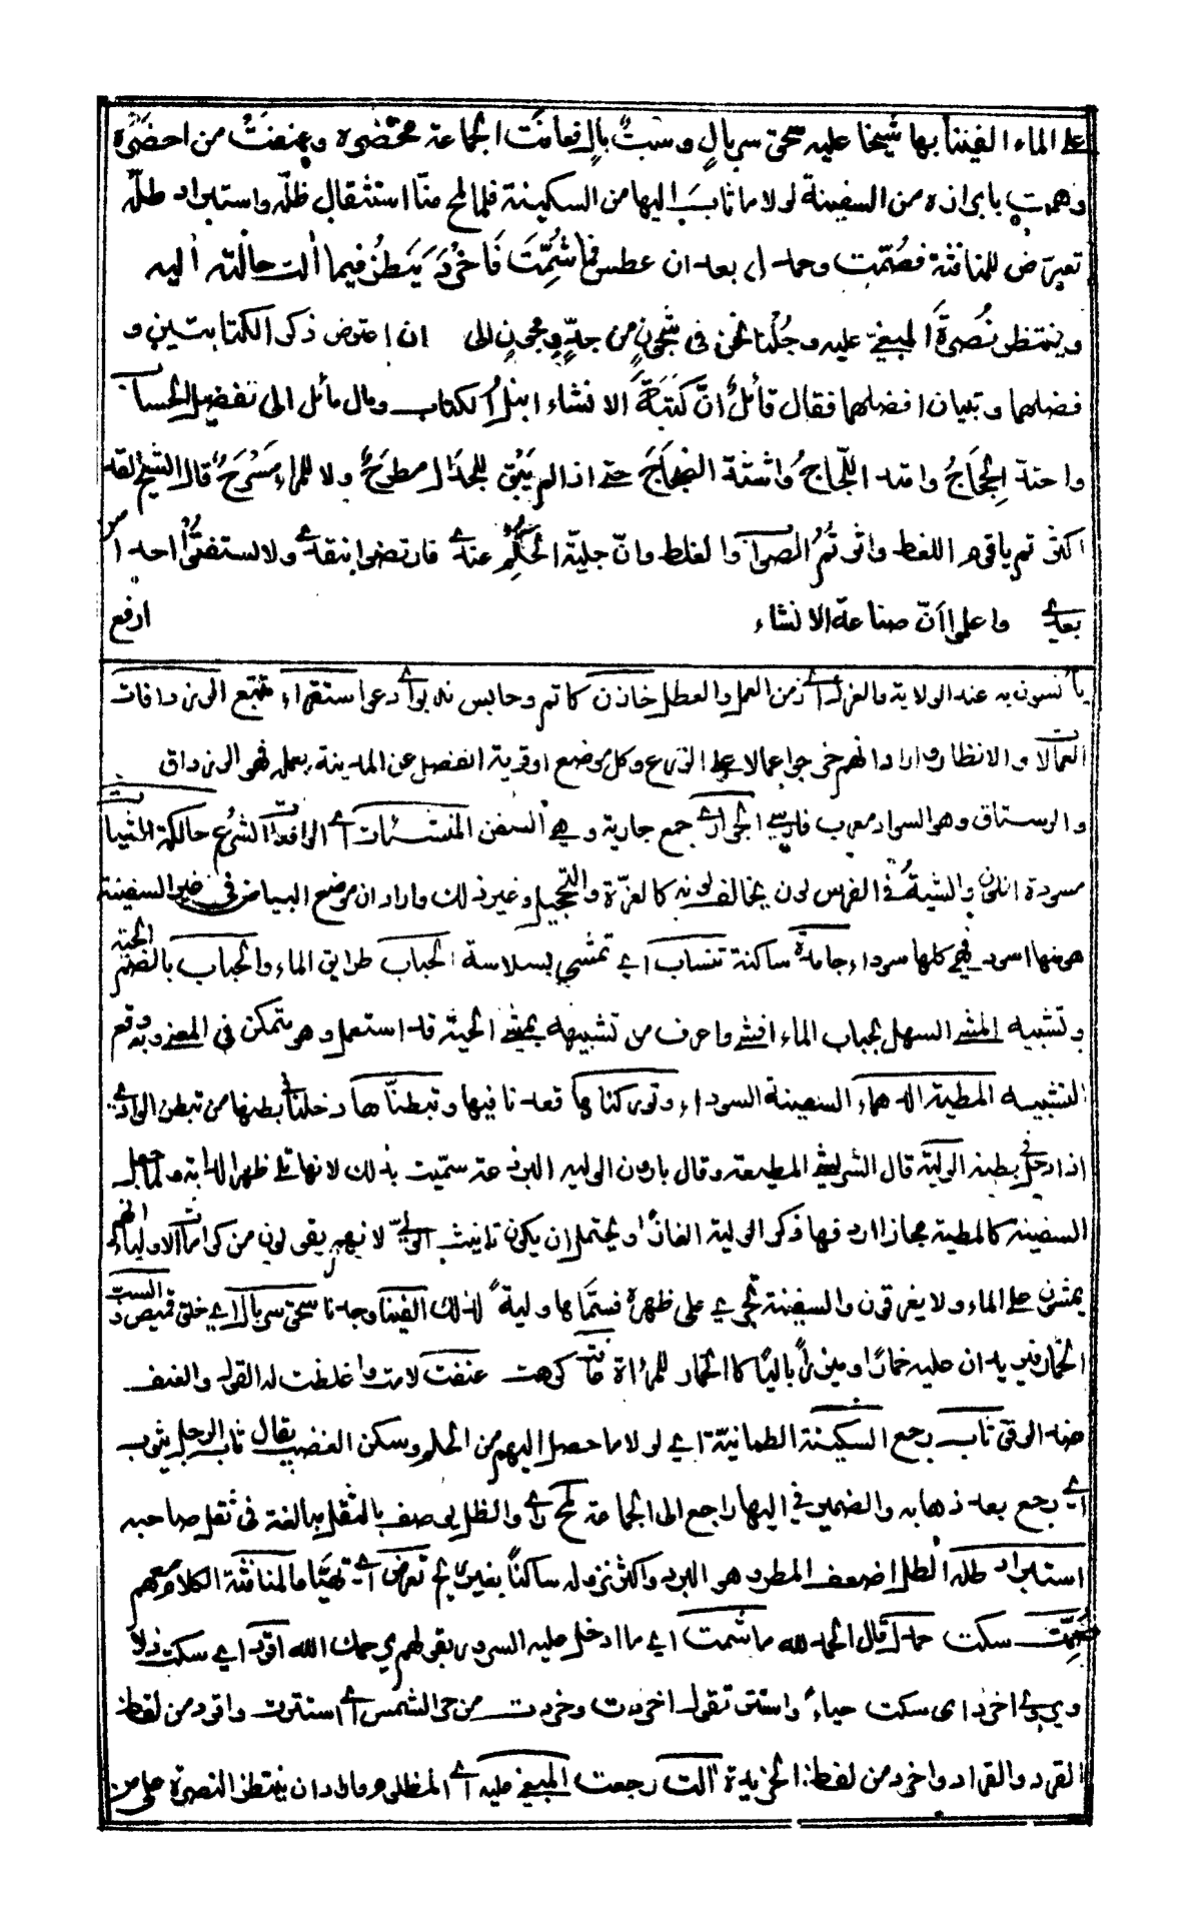 على الماء الفينا بها شيخا عليه سحق سربال وسبّ بال فعافت الجماعة محضره وعنفت من احضره
وهمت بابرازه من السفينة لولا ما ثاب اليها من السكينة فلما لمح منّا استثقال ظلّه واستبراد طلّه
تعرّض للمنافثة فصُمّت وحمدل بعد ان عطس فما شُمّت فاخرد ينظر فيما آلت حالته اليه
وينتظر نصرة المبغيّ عليه وجُلنا نحن فى شجون من جدّ ومجون الى ان اعترض ذكر الكتابتين و
فضلهما وتبيان افضلهما فقال قائل انّ كتبة الانشاء انبل الكتاب ومال مائل الى تفضيل الحساب
واحتدّ الحجاج وامتد اللّجاج حتى اذا لم يبق للجدال مطرح ولا للمراء مسرح قال الشيخ لقد
اكثرتم يا قوم اللغط واثرتم الصواب والغلط وانّ جليّة الحكم عندي فارتضوا بنقدي ولا تستفتوا احدا
بعدي واعلموا انّ صناعة الانشاء ارفع
يأنسون به عند الولاية والعزل اي زمن العمل والعطل خازن كاتم وحابس ندبوا اي دعوا استقراء تتبع
العمالا والانظار وارادانهم خرجوا عمالا على الزرع وكل موضع او قرية انفصل عن المدينة بعمله فهو الرزداق
والرستاق وهو السواد معرب فارسي الجواري جمع جارية وهي السفن المنشئات اي الرافعات الشرع حالكة
مسودة اللون والشية في الفرس لون يخالف لونه كالغرّة والتحجيل وغير ذلك واراد ان موضع البياض في غير السفينة
هو منها اسود فهي كلها سوداء جامدة ساكنة تنساب اي تمشي بسلاسة الحباب طرايق الماء والحباب بالضم الحية
وتشبيه المشي السهل بحباب الماء افشى واعرف من تشبيهه بمشي الحية قد استعمل وهو متمكن في المعنى
التشبيه المطية الدهماء السفينة السوداء وتوركناها قعدنا فيها وتبطنّاها دخلنا بطنها من تبطن الوادي
اذا دخل بطنه الولية قال الشريشي المطيعة وقال بارون الوليد البرذعة سميت بذلك لانها تلي ظهر الدابة ولما جعل
السفينة كالمطية مجازا اردفها ذكر الولية الغازا ويحتمل ان يكون تانيث الوليّ لانهم يقولون من كرامات الاولياء انهم
يمشون على الماء ولا يغرقون والسفينة تجري على ظهره فسمّاها ولية لذلك الفينا وجدنا سحق سربال اي خلق قميص السب
الخمار فيريد ان عليه خمارا باليا كالخمار للمراة فعافت كرهت عنفت لامت واغلظت له القول والعنف
ضد الرفق ثاب رجع السكينة الطمانيّة اي لولا ما حصل اليهم من الحلم وسكن الغضب يقال ثاب الرجل يثوب
اي رجع بعد ذهابه والضمير في اليها راجع الى الجماعة لمح راي والظل يوصف بالثقل مبالغة فى ثقل صاحبه
استبراد طله الطل اضعف المطر وهو البرد واكثر نزوله ساكنا بغير ريح تعرض اي تهيّا المنافثة الكلام
صُمّت سكت حمدل قال الحمد لله ما شمت اي ما ادخل عليه السرور بقولهم يرحمك الله اقرد اي سكت ذلا
ويروى اخرد اى سكت حياء واستتر تقول اخردت وخردت من حر الشمس اي استترت واقرد من لفظ
القرد والقراد واخرد من لفظ الخريدة آلت رجعت المبغي عليه اي المظلوم واراد ان ينتظر النصرة على من